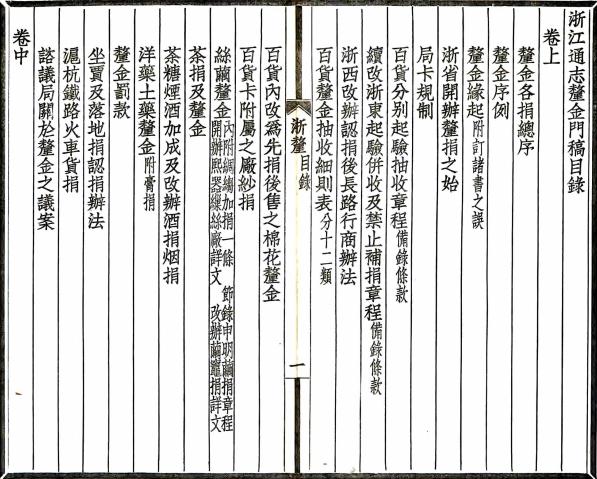 浙江通志釐金門稿目錄
卷上
釐金各捐總序
釐金序例
釐金緣起附訂諸書之誤
浙省開辦釐捐之始
局卡規制
百貨分别起驗抽收章程備錄條款
續改浙東起驗併收及禁止補捐章程備錄條款
浙西改辦認捐後長路行商辦法
百貨釐金抽收細則表分十二類
浙釐目錄
一
百貨內改爲先捐後售之棉花釐金
百貨卡附屬之廠紗捐
絲繭釐金內附綢縐加捐一條 節錄申明繭捐章程
開辦熙器繰絲廠詳文 改辦繭竈捐詳文
茶捐及釐金
茶糖煙酒加成及改辦酒捐烟捐
洋藥土藥釐金附膏捐
釐金罰款
坐賈及落地捐認捐辦法
滬杭鐵路火車貨捐
諮議局關於釐金之議案
卷中